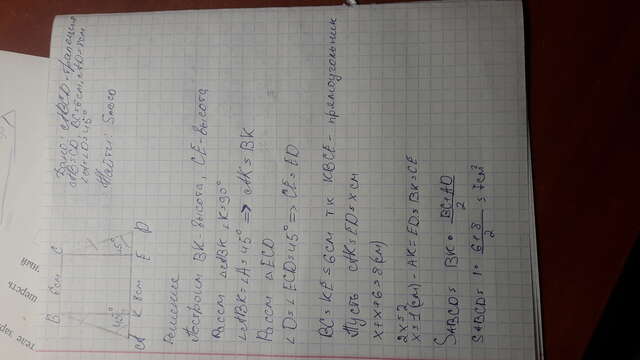 Дано: ABCD-трапеция
AB=CD BC=6см, AD=8см
∠A=∠D=45°
Найти: SABCD
B 6см C
45° 45°
A K 8см E D
Решение
Построим BK-высота, CE-высота
Рассм △ABK ∠K=90°
∠ABK=∠A=45° => AK=BK
Рассм △ECD
∠D=∠ECD=45° => CE=ED
BC=KE=6см тк KBCE-прямоугольник
Пусть AK=ED=x см
x+x+6=8(см)
2x=2
x=1(см)-AK=ED=BK=CE
SABCD= BK • BC+AD / 2
SABCD= 1• 6+8 / 2 =7см²
ный
шерсть
теле